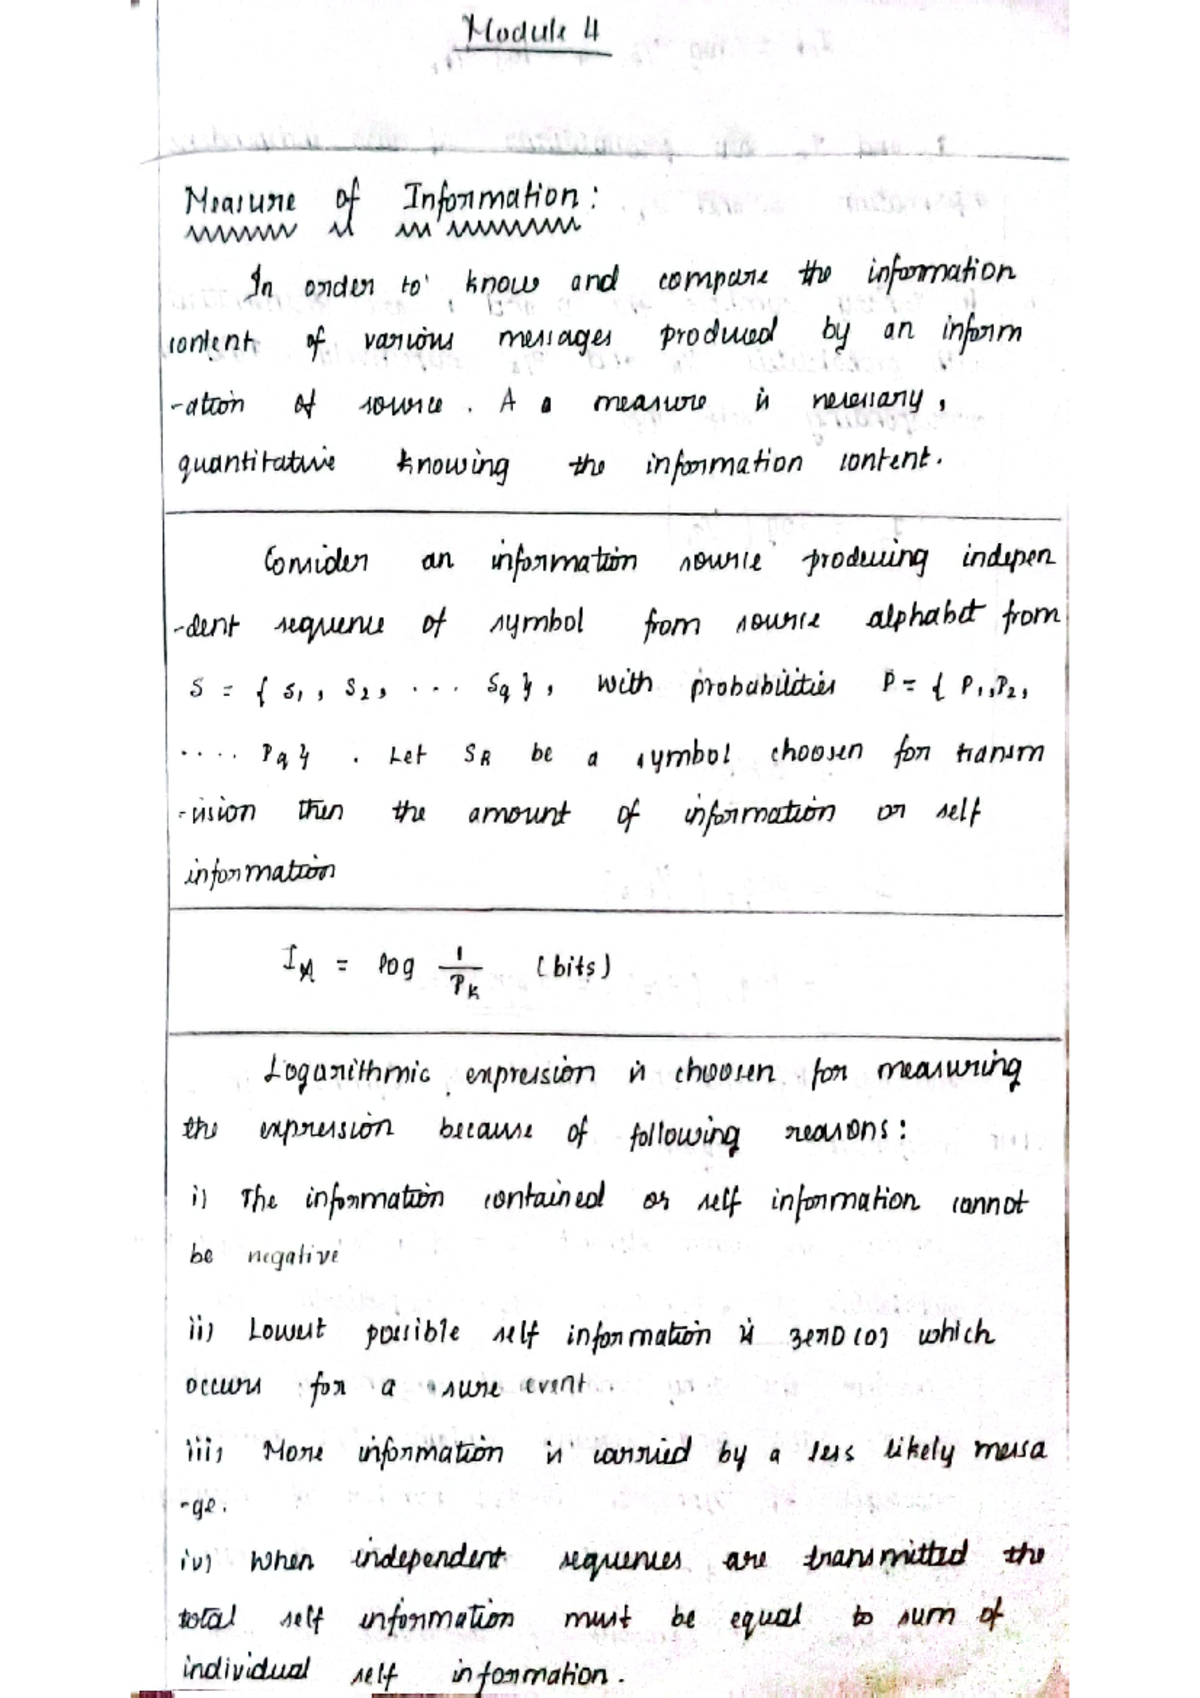 Module 4
Measure of Information :
In order to know and compare the information
content of various messages produced by an inform
-ation of source . A a measure is necessary ,
quantitative knowing the information content .
Consider an information source producing indepen
-dent sequence of symbol from source alphabet from
S = { S1 , S2 , . . . Sq } , with probabilities P = { P1 , P2 ,
. . . . Pq } . Let SR be a symbol choosen for transm
-ission then the amount of information or self
information
I = log 1/PK (bits)
Logarithmic expression is choosen for measuring
the expression because of following reasons :
i) The information contained or self information cannot
be negative
ii) Lowest possible self information is zero (0) which
occurs for a sure event .
iii) More information is carried by a less likely messa
-ge .
iv) When independent sequences are transmitted the
total self information must be equal to sum of
individual self information .